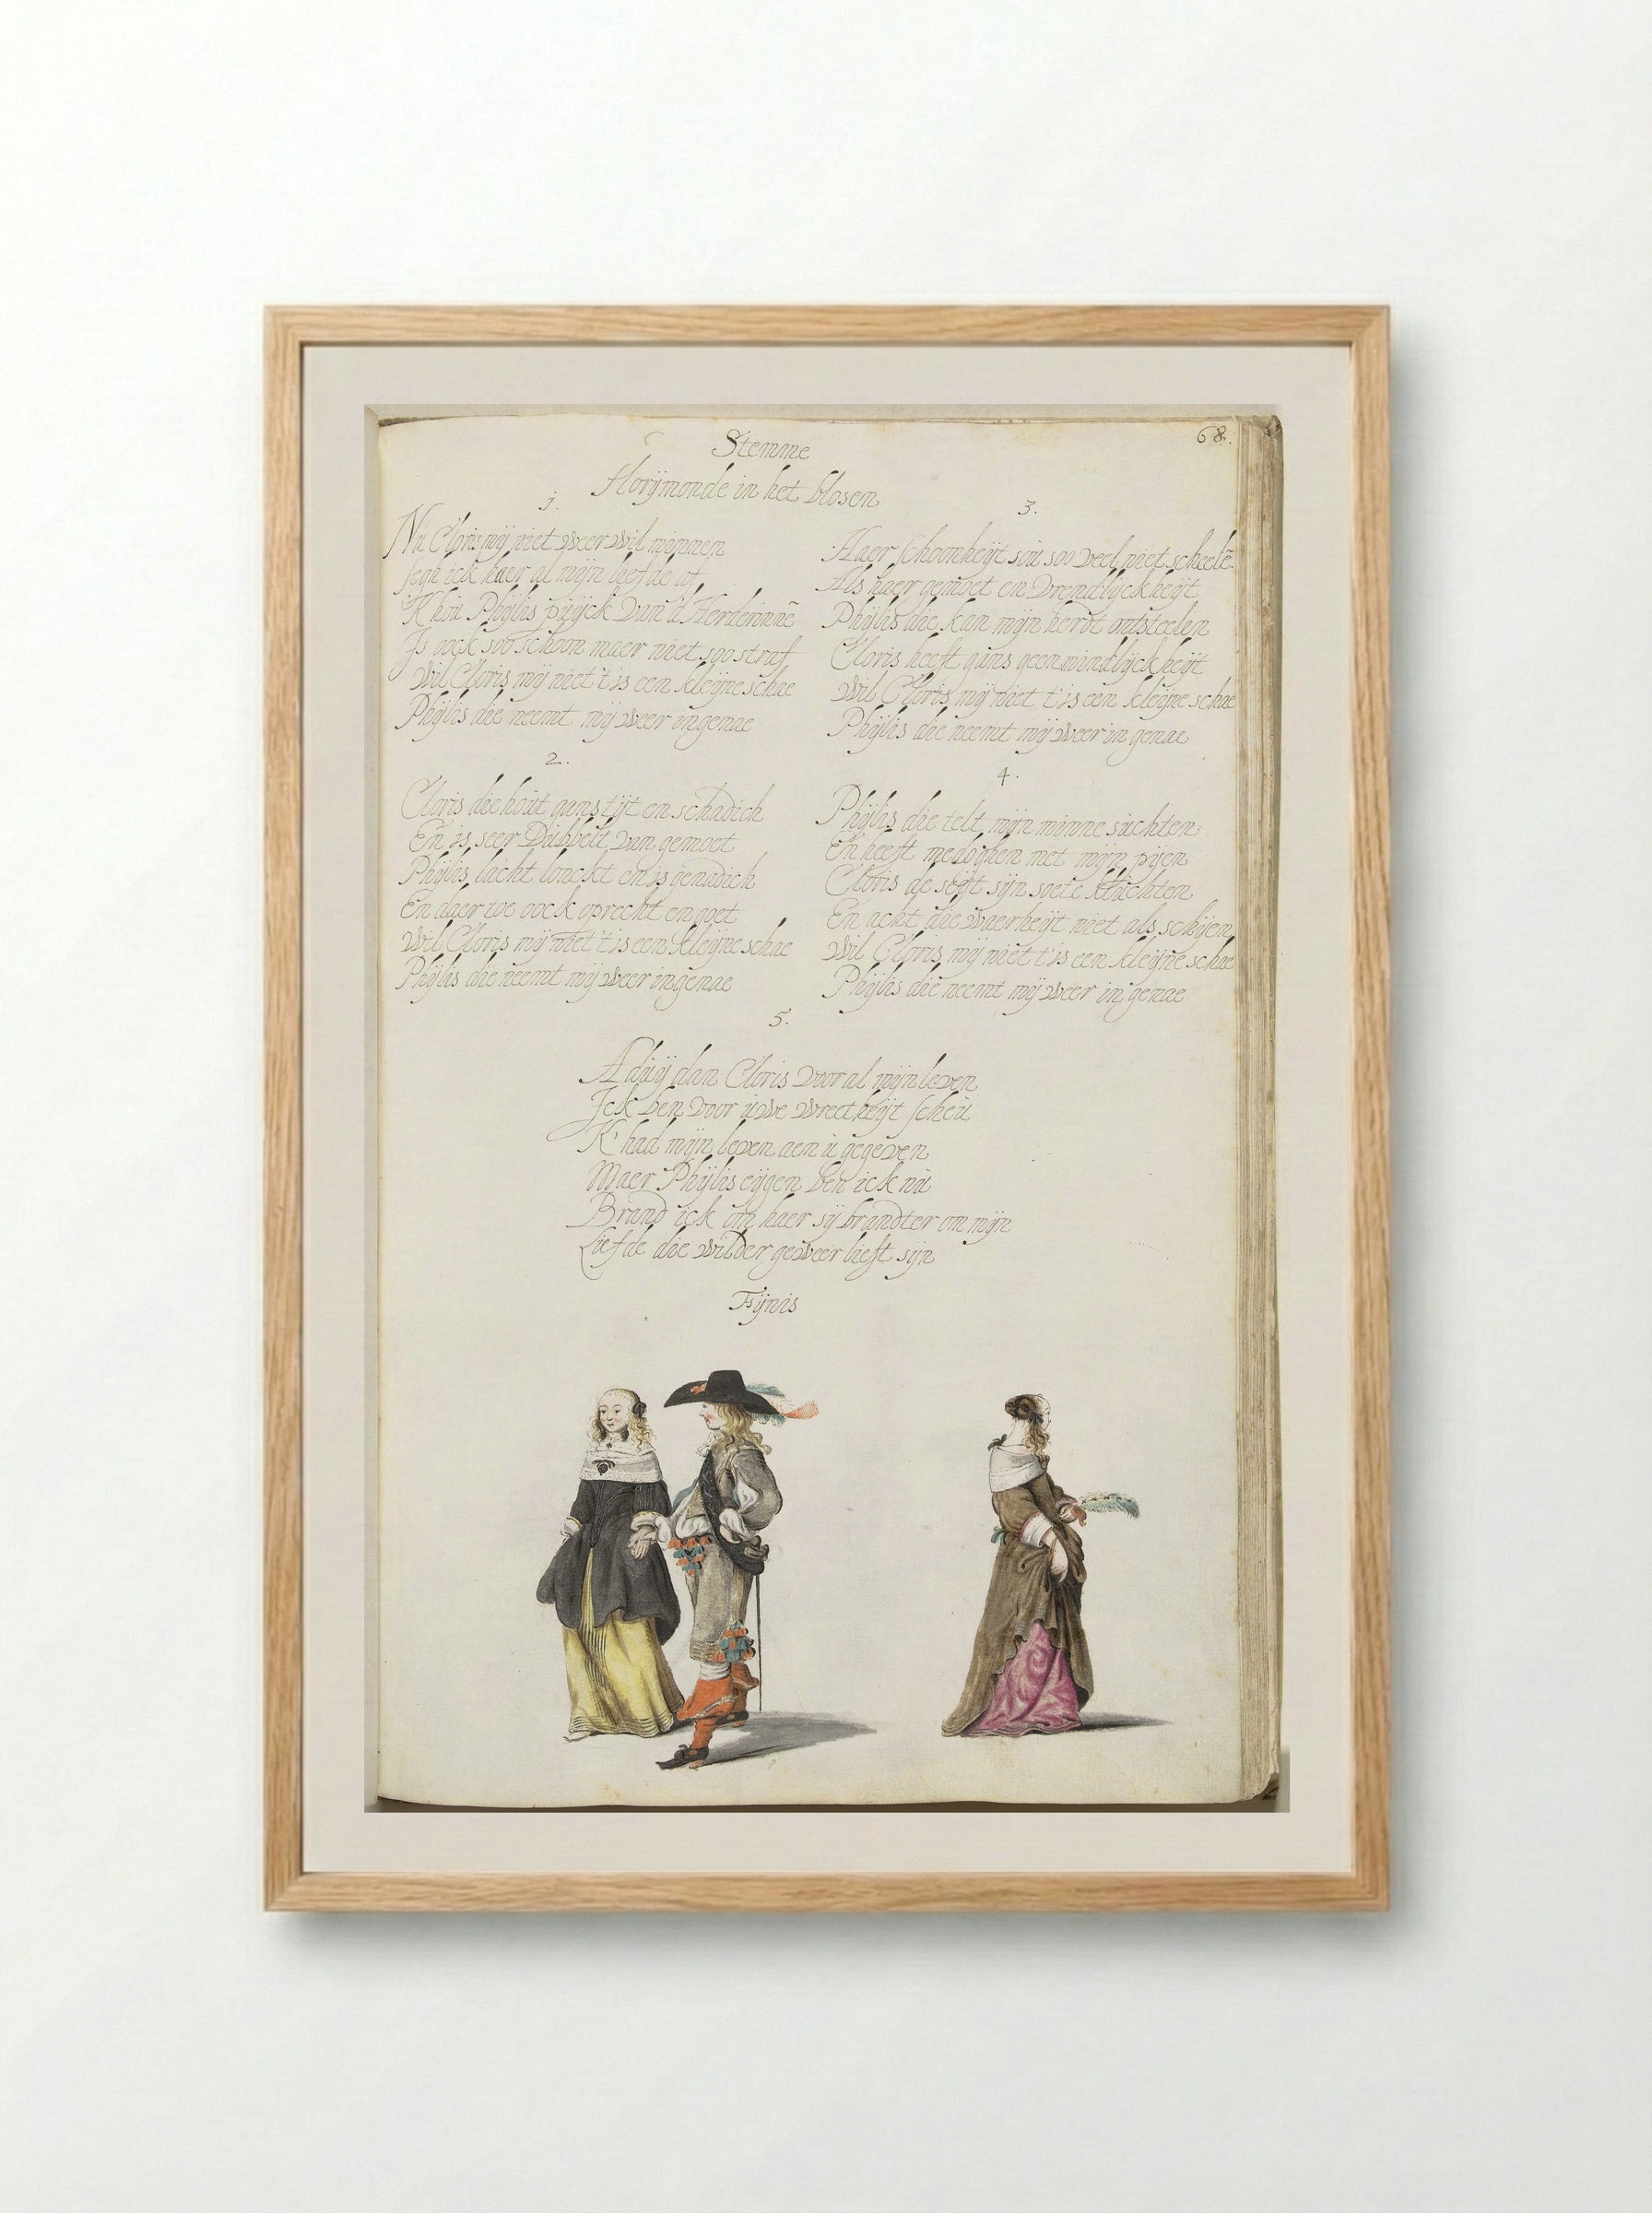 68.
Stemme
Florijmonde in het blosen
1.
Nu Cloris mij niet weer wil minnen
Segh ick haer al mijn liefde af
K hou Phijlis puijck van d'Herderinnē
Is oock soo schoon maer niet soo straf
Wil Cloris mij niet t is een kleijne schae
Phijlis die neemt mij weer in genae
2.
Cloris die hout gans tijt en schadich
En is seer Dubbelt van gemoet
Phijlis lacht lonckt en is genadich
En daer toe oock oprecht en goet
Wil Cloris mij niet t is een kleijne schae
Phijlis die neemt mij weer in genae
3.
Haer schoonheijt sou soo veel niet scheelē
Als haer gemoet en vrendlijckheijt
Phijlis die kan mijn herdt ontsteelen
Cloris heeft gans geen mindlijckheijt
Wil Cloris mij niet t is een kleijne schae
Phijlis die neemt mij weer in genae
4.
Phijlis die telt mijn minne suchten
En heeft medoghen met mijn pijen
Cloris de seijt sijn soete kluchten
En acht die waerheijt niet als schijen
Wil Cloris mij niet t is een kleijne schae
Phijlis die neemt mij weer in genae
5.
Aduij dan Cloris voor al mijn leven
Ick ben voor uwe wreetheijt scheu
K' had mijn leven aen u gegeven
Maer Phijlis eijgen ben ick nu
Brand ick om haer sij brandter om mijn
Liefde die wilder geweer lieft sijn
Fijnis